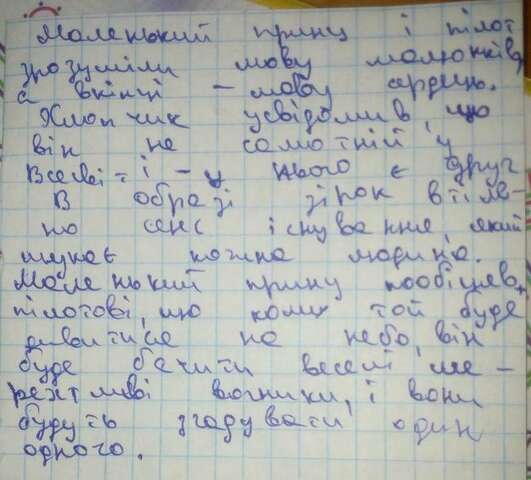 Маленький принц і пілот
зрозуміли мову малюнків,
а вкінці – мову серця.
Хлопчик усвідомив, що
він не самотній у
Всесвіті – у нього є друг
В образі зірок втіле-
но сенс існування, який
шукає кожна людина.
Маленький принц пообіцяв
пілотові, що коли той буде
дивитися на небо, він
буде бачити веселі ме-
рехтливі вогники, і вони
будуть згадувати один
одного.